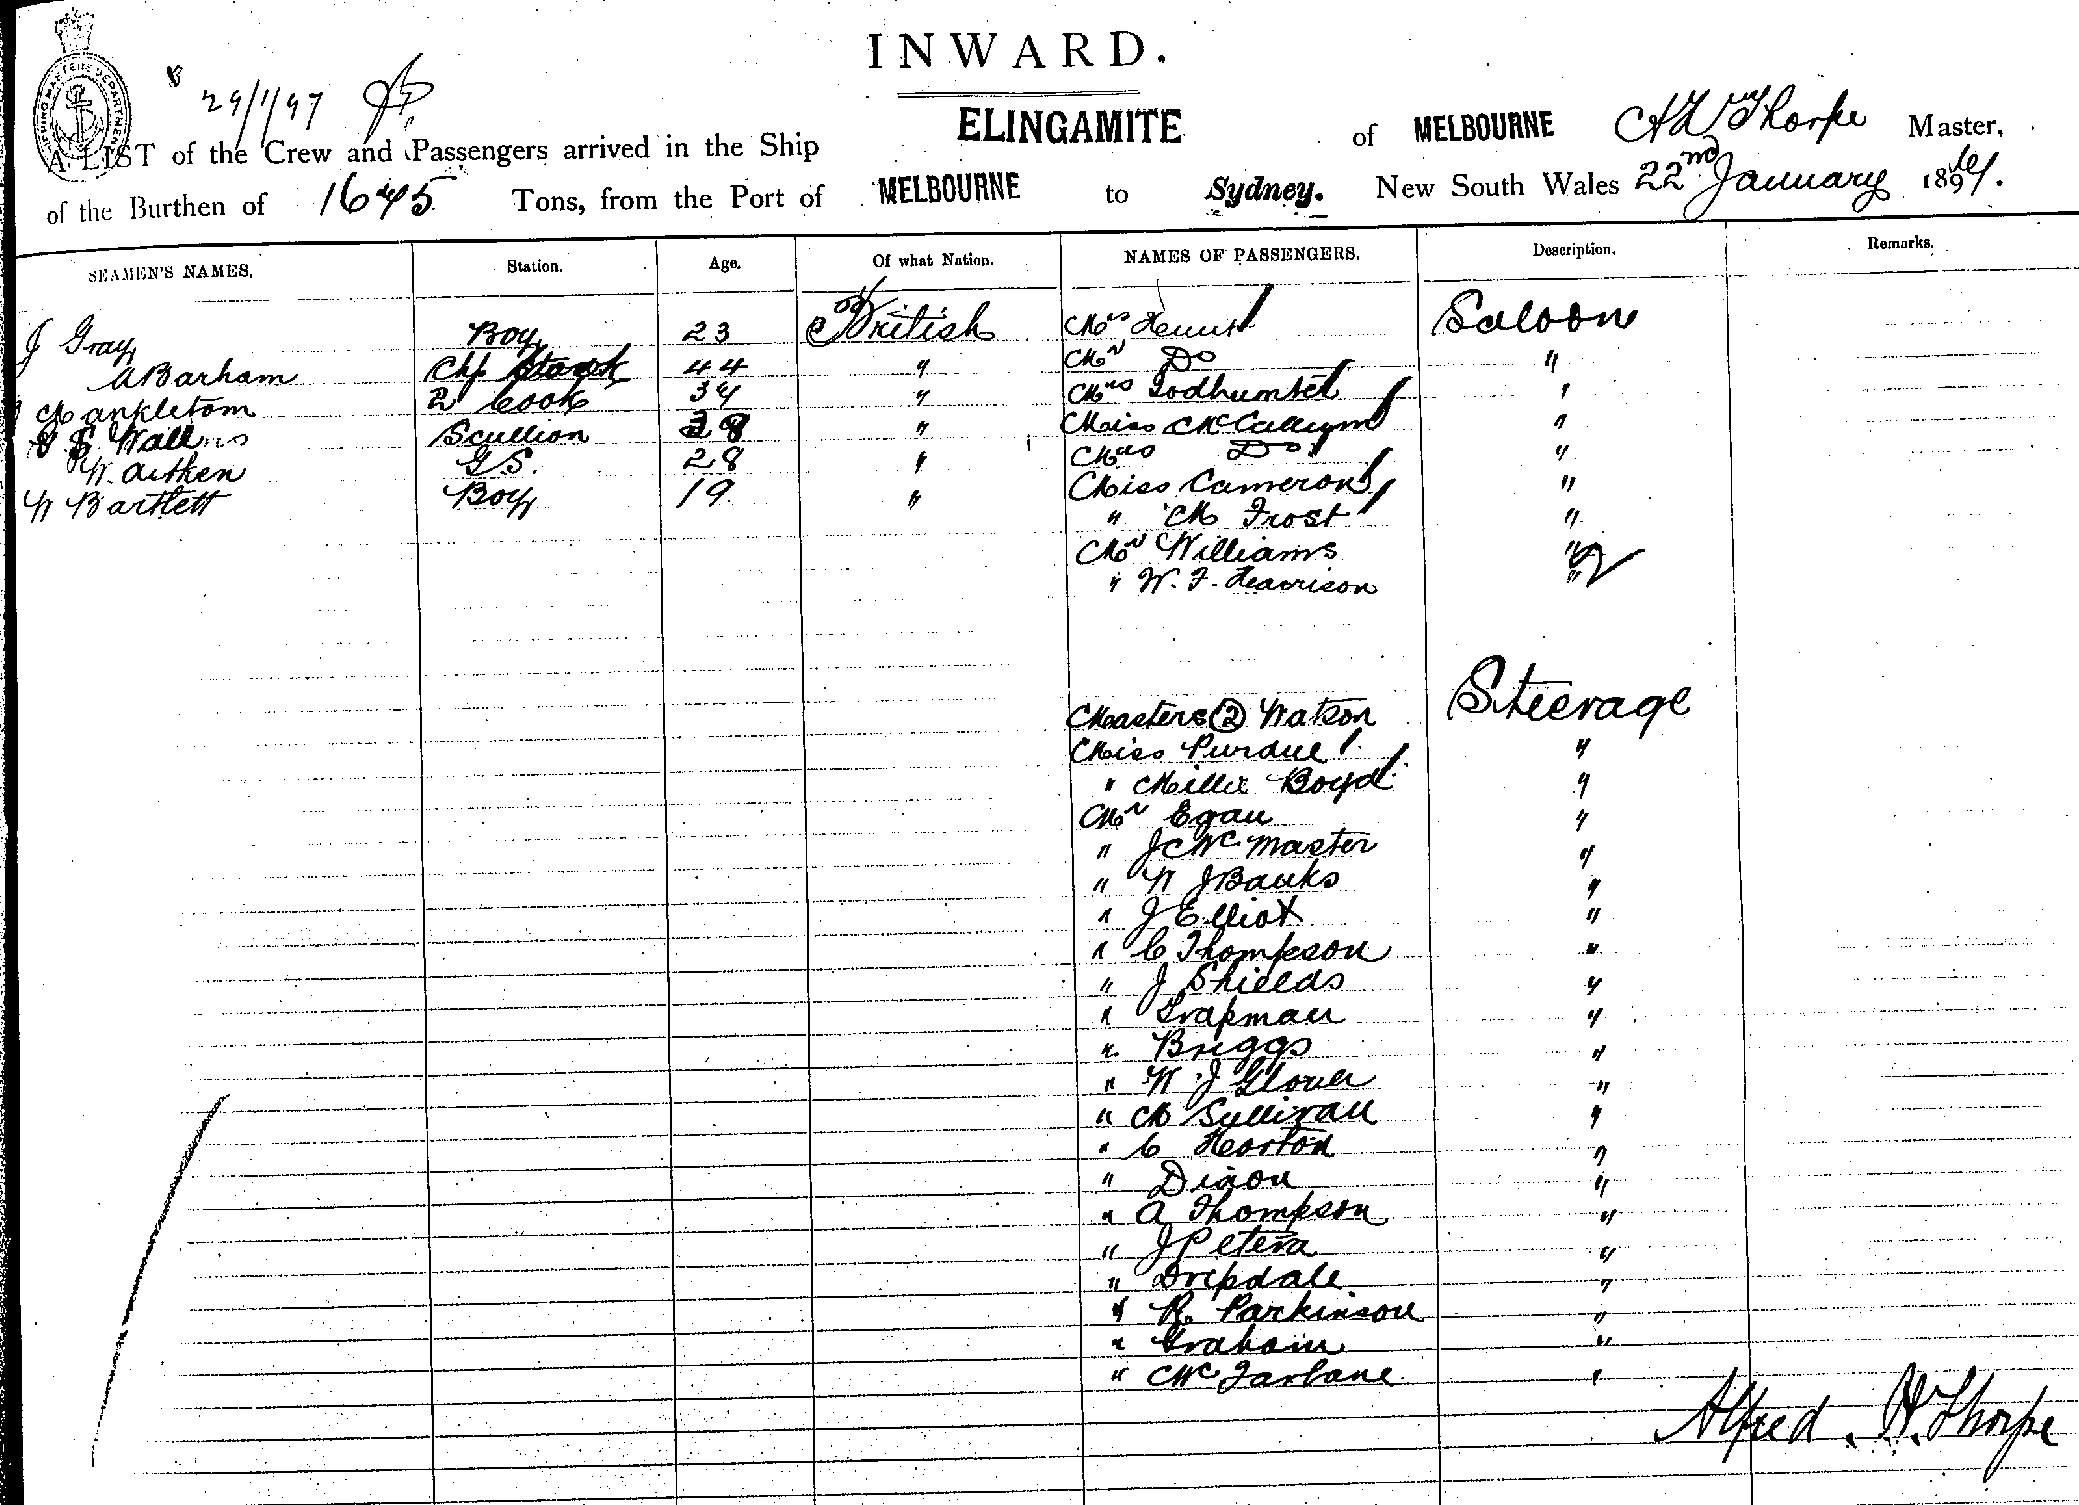 INWARD.
SHIPPING MASTER'S DEPARTMENT
29/1/97
A LIST of the Crew and Passengers arrived in the Ship ELINGAMITE of MELBOURNE A W Thorpe Master,
of the Burthen of 1675 Tons, from the Port of MELBOURNE to Sydney. New South Wales 22nd January 189
SEAMEN'S NAMES. Station. Age. Of what Nation. NAMES OF PASSENGERS. Description. Remarks.
J Gray Boy 23 British Mrs Saloon
A Barham Chf 44 " Mr Do "
M ankletom 2 Cook 34 " Mrs Todhunter "
S Wallins Scullion 38 " Miss McCallum "
W. Aitken G.S. 28 " Mrs Do "
W Bartlett Boy 19 " Miss Cameron "
" M Frost "
Mr Williams "
" W. F. Harrison "
Masters (2) Watson Steerage
Miss Purdue "
" Millie Boyd "
Mr Egan "
" J McMaster "
" W J Banks "
" J Elliot "
" C Thompson "
" J Shields "
" Trapman "
" Briggs "
" W J Glover "
" M Sullivan "
" C Horton "
" Dixon "
" A Thompson "
" J Peters "
" Dripdale "
" R. Parkinson "
" Graham "
" McFarlane "
Alfred. W. Thorpe